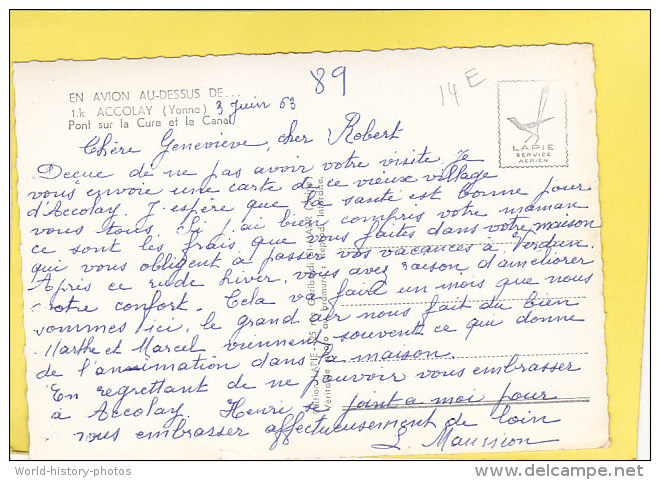 89
14 E
EN AVION AU-DESSUS DE...
1.k ACCOLAY (Yonne) 3 Juin 63
Pont sur la Cure et le Canal
LAPIE
SERVICE
AÉRIEN
Chère Geneviève, cher Robert
Déçue de ne pas avoir votre visite, Je
vous envoie une carte de ce vieux village
d'Accolay. J'espère que la santé est bonne pour
vous tous. Si j'ai bien compris votre maman
ce sont les frais que vous faites dans votre maison
qui vous obligent à passer vos vacances à Verdun.
Après ce rude hiver, vous avez raison d'améliorer
votre confort. Cela va faire un mois que nous
sommes ici, le grand air nous fait du bien
Marthe et Marcel viennent souvent ce qui donne
de l'animation dans la maison.
En regrettant de ne pouvoir vous embrasser
à Accolay. Henri se joint a moi pour
vous embrasser affectueusement de loin
L. Maussion
World-history-photos
©delcampe.net